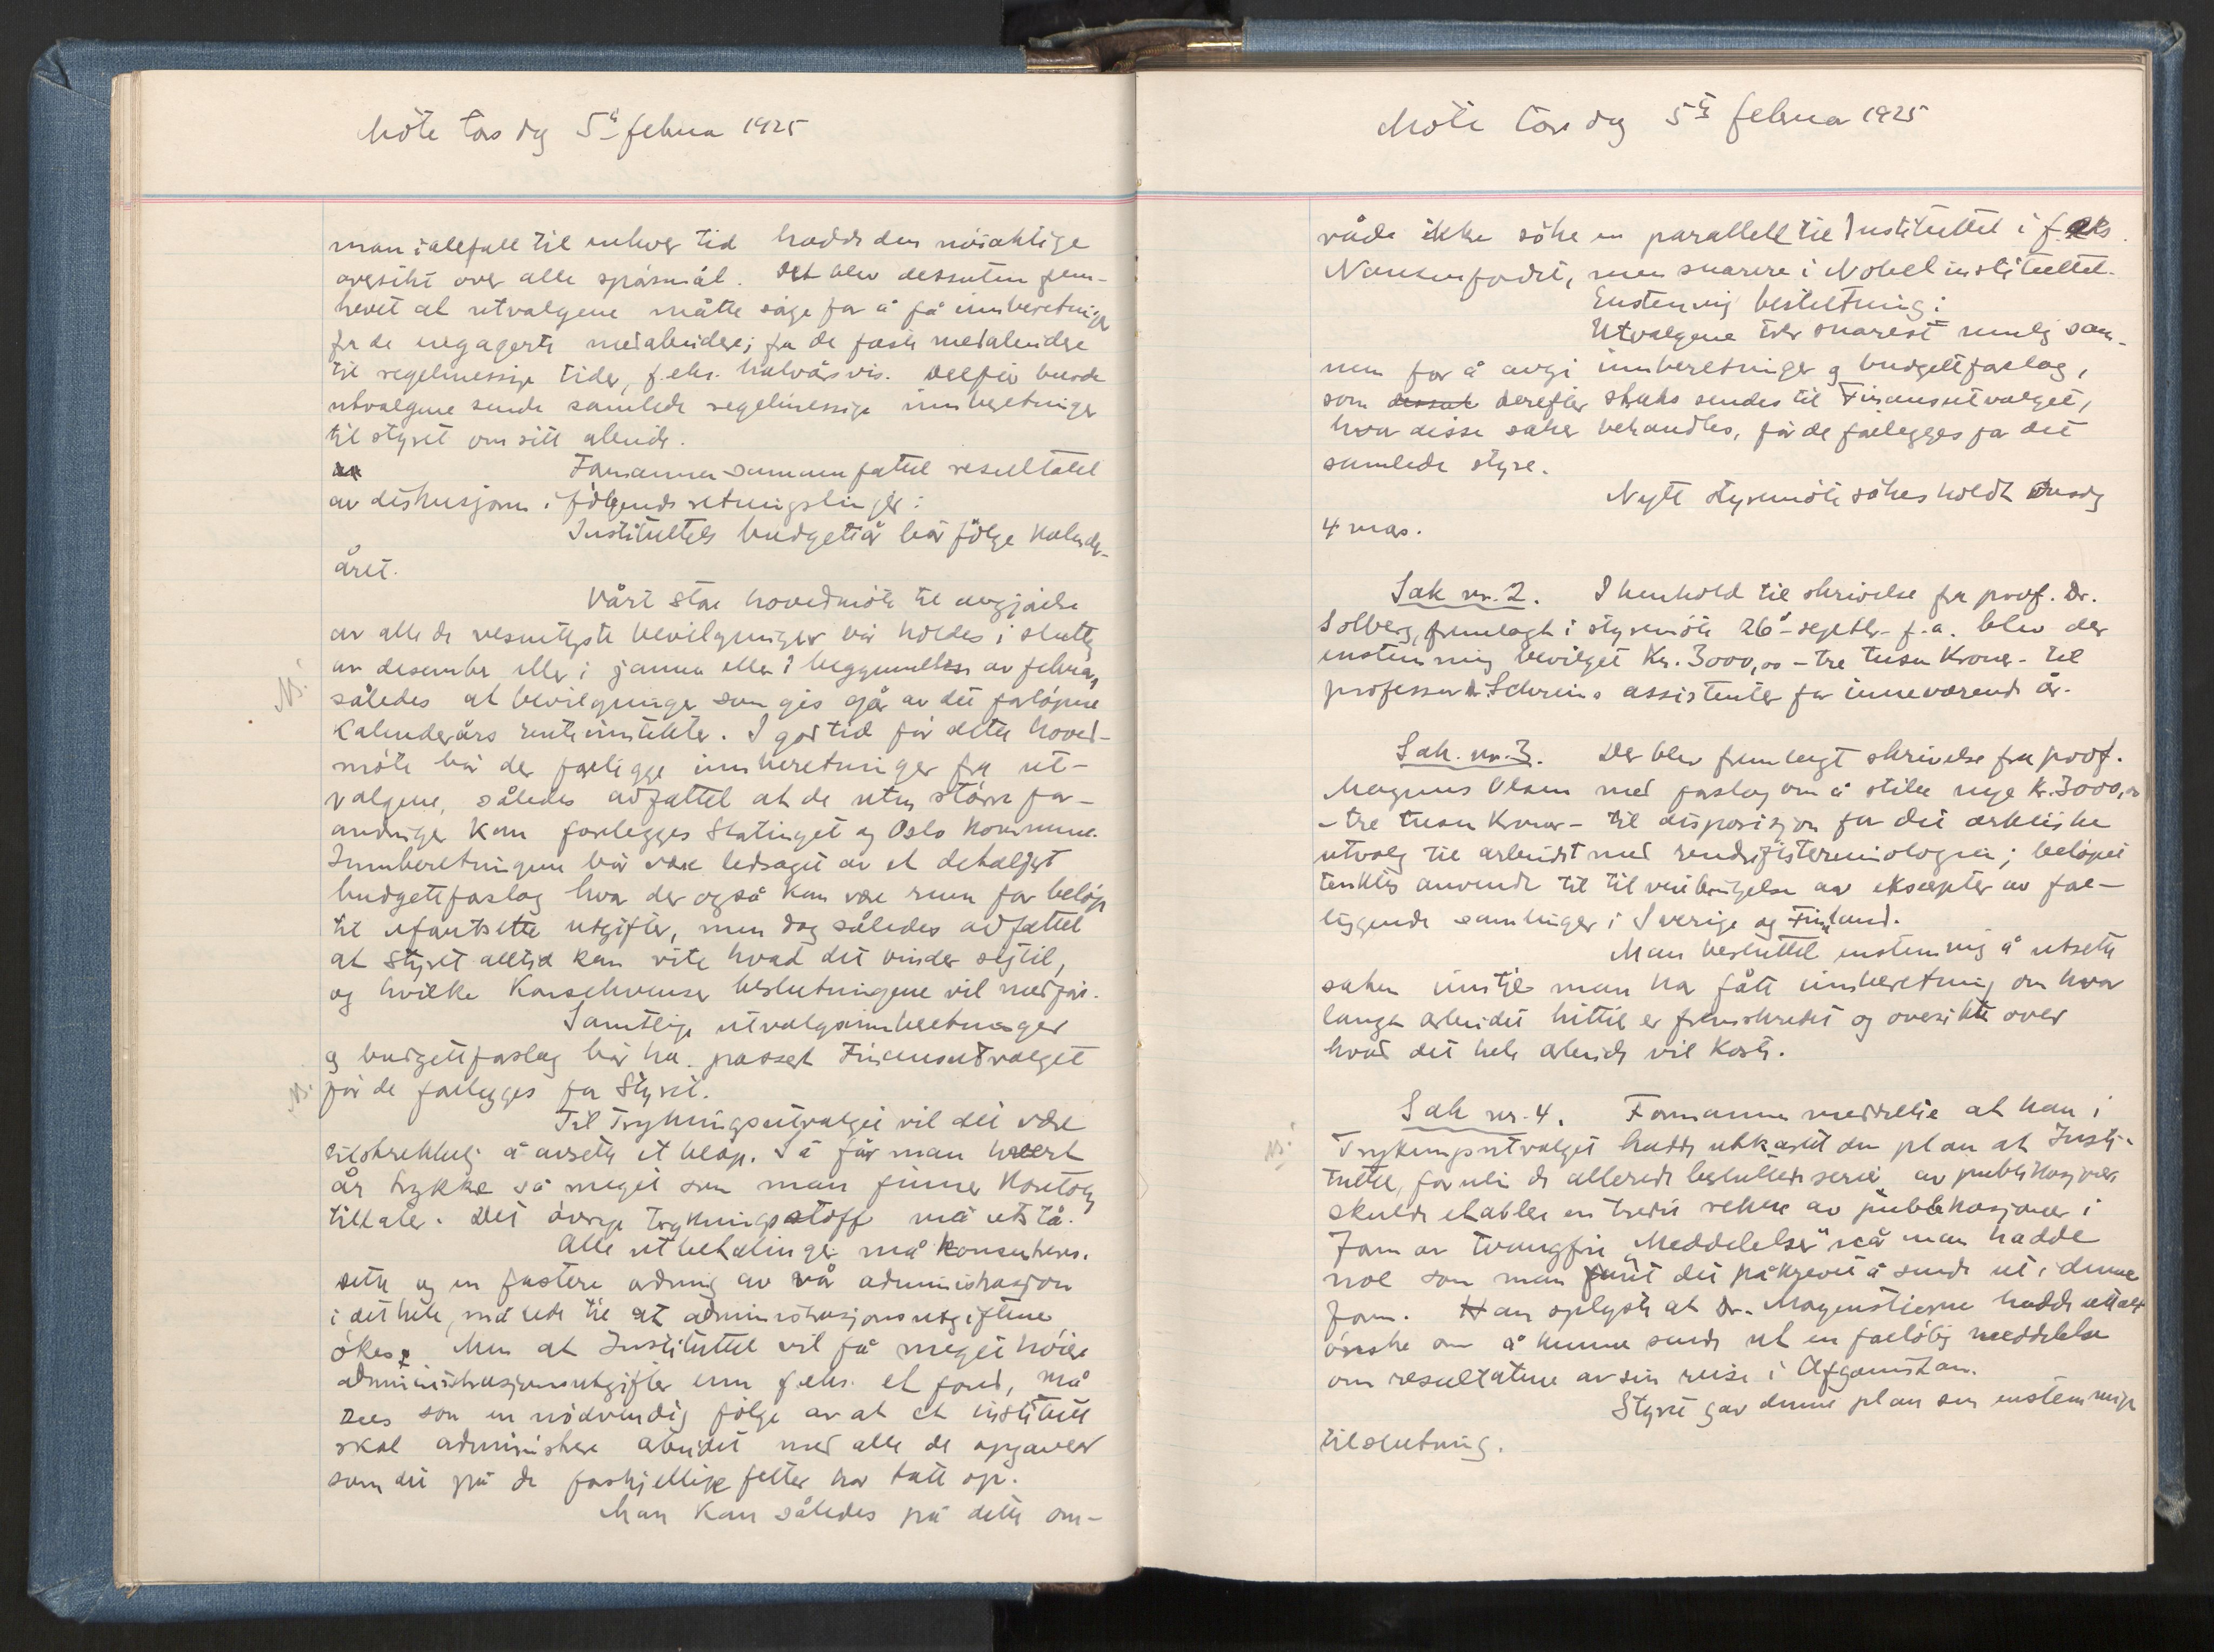 Möte torsdag 5te februar 1925
man i allefall til enhver tid hadde den nöiaktige
oversikt over alle spörsmål. Det blev dessuten frem-
hevet at utvalgene måtte sörge for å få innberetninger
fra de engagerte medarbeidere; fra de faste medarbeidere
til regelmessige tider, f.eks. halvårsvis. Derfor burde
utvalgene sende samlede regelmessige innberetninger
til styret om sitt arbeide.
Formannen sammenfattet resultatet
av diskusjonen i fölgende retningslinjer:
Instituttets budgettår bör fölge kalender-
året.
Vårt store hovedmöte til avgjörelse
av alle de vesentligste bevilgninger bör holdes i slutten
av desember eller i januar eller i begynnelsen av februar,
NB!
således at bevilgninger som gis gjör av det forlöpne
kalenderårs renteinntekter. I god tid för dette hoved-
möte bör der foreligge innberetninger fra ut-
valgene, således avfattet at de uten större for-
andringer kan forelegges Stortinget og Oslo Kommune.
Innberetningene bör være ledsaget av et detaljert
budgettforslag hvor der også kan være rum for belöp
til uforutsette utgifter, men dog således avfattet
at Styret alltid kan vite hvad det binder sig til,
og hvilke konsekvenser beslutningene vil medföre.
Samtlige utvalgsinnberetninger
og budgettforslag bör ha passert Finansutvalget
NB!
för de forelegges for Styret.
Til Trykningsutvalget vil det være
tilstrekkelig å avsette et belöp. Så får man hvert
år trykke så meget som man finner kontoen
tillater. Det övrige trykningsstoff må utstå.
Alle utbetalinger må konsenteres.
dette og en fastere ordning av vår administrasjon
i det hele, må lede til at administrasjonsutgiftene
ökes. Men at Instituttet vil få meget höiere
administrasjonsutgifter enn f.eks. et fond, må
sees som en nödvendig fölge av at et institutt
skal administrere arbeidet med alle de opgaver
som det på de forskjellige felter har tatt op.
Man kan således på dette om-
Möte torsdag 5te februar 1925
råde ikke söke en parallell til Instituttet i f.eks.
Nansenfondet, men snarere i Nobelinstituttet.
Enstemmig beslutning:
Utvalgene trer snarest mulig sam-
men for å avgi innberetninger og budgettforslag,
som derefter straks sendes til Finansutvalget,
hvor disse saker behandles, för de forelegges for det
samlede styre.
Nytt styremöte sökes holdt onsdag
4 mars.
Sak nr. 2. I henhold til skrivelse fra prof. Dr.
Solberg, fremlagt i styremöte 26de septbr. f.a. blev der
enstemmig bevilget Kr. 3000,00 - tre tusen kroner - til
professor Schreiners assistenter for inneværende år.
Sak. nr. 3. Der blev fremlagt skrivelse fra prof.
Magnus Olsen med forslag om å stille nye kr. 3000,00
- tre tusen kroner - til disposisjon for det arktiske
utvalg til arbeidet med rendriftsterminologien; belöpet
tenktes anvendt til tilveiebringelse av eksepter av fore-
liggende samlinger i Sverige og Finland.
Man besluttet enstemmig å utsette
saken inntil man har fått innberetning om hvor
langt arbeidet hittil er fremskredet og oversikt over
hvad det hele arbeide vil koste.
Sak nr. 4. Formannen meddelte at han i
NB!
Trykningsutvalget hadde utkastet den plan at Insti-
tuttet, foruten de allerede besluttede serier av publikasjoner,
skulde etablere en tredie rekke av publikasjoner i
form av tvangfri "Meddelelser" når man hadde
noe som man fant det påkrevet å sende ut i denne
form. Han oplyste at Dr. Morgenstierne hadde uttalt
önske om å kunne sende ut en forelöbig meddelelse
om resultatene av sin reise i Afganistan.
Styret gav denne plan sin enstemmige
tilslutning.